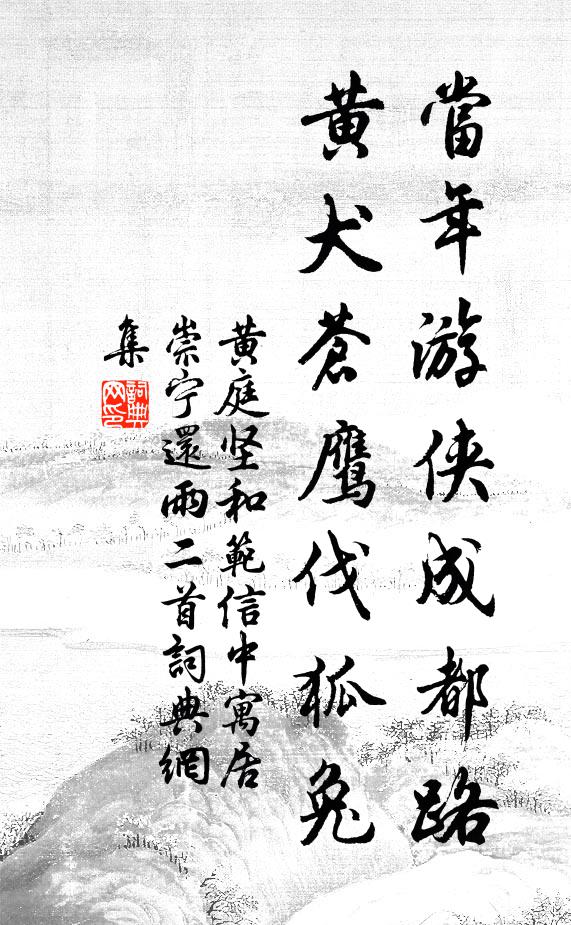 當年游侠成都路
黄犬蒼鷹伐狐兔
黄庭坚和範信中寓居
崇宁還雨二首詞典網
集
詞典
网印